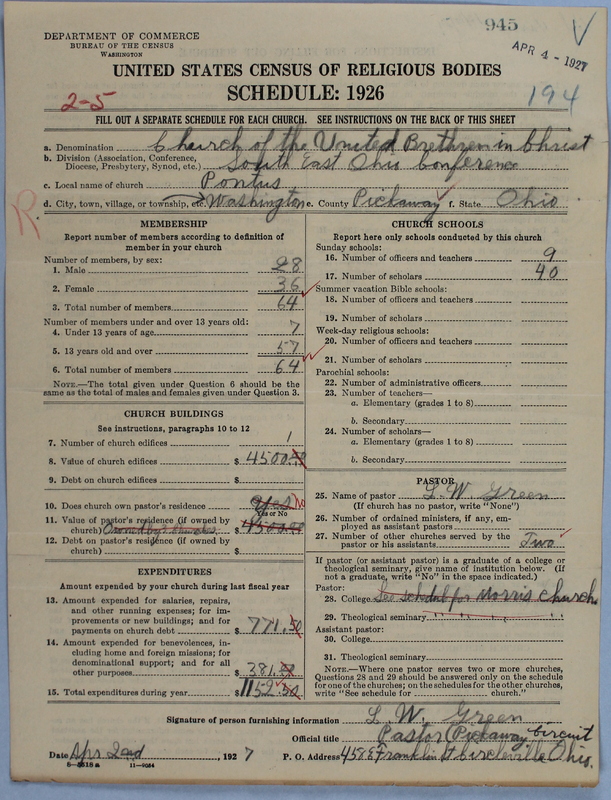 945
DEPARTMENT OF COMMERCE
BUREAU OF THE CENSUS
WASHINGTON
APR 4 - 1927
UNITED STATES CENSUS OF RELIGIOUS BODIES
SCHEDULE: 1926
2-5
194
FILL OUT A SEPARATE SCHEDULE FOR EACH CHURCH. SEE INSTRUCTIONS ON THE BACK OF THIS SHEET
a. Denomination Church of the United Brethren in Christ
b. Division (Association, Conference, Diocese, Presbytery, Synod, etc.) South East Ohio Conference
c. Local name of church Pontus
d. City, town, village, or township, etc. Washington e. County Pickaway f. State Ohio
R
MEMBERSHIP
Report number of members according to definition of
member in your church
Number of members, by sex:
1. Male 28
2. Female 36
3. Total number of members 64
Number of members under and over 13 years old:
4. Under 13 years of age 7
5. 13 years old and over 57
6. Total number of members 64
NOTE.—The total given under Question 6 should be the
same as the total of males and females given under Question 3.
CHURCH BUILDINGS
See instructions, paragraphs 10 to 12
7. Number of church edifices 1
8. Value of church edifices $4500.00
9. Debt on church edifices $
10. Does church own pastor's residence Yes No
Yes or No
11. Value of pastor's residence (if owned by
church) $4500.00
12. Debt on pastor's residence (if owned by
church) $
EXPENDITURES
Amount expended by your church during last fiscal year
13. Amount expended for salaries, repairs,
and other running expenses; for im-
provements or new buildings; and for
payments on church debt $771.50
14. Amount expended for benevolences,
including home and foreign missions; for
denominational support; and for all
other purposes 381.
15. Total expenditures during year $1152.50
CHURCH SCHOOLS
Report here only schools conducted by this church
Sunday schools:
16. Number of officers and teachers 9
17. Number of scholars 40
Summer vacation Bible schools:
18. Number of officers and teachers
19. Number of scholars
Week-day religious schools:
20. Number of officers and teachers
21. Number of scholars
Parochial schools:
22. Number of administrative officers
23. Number of teachers—
a. Elementary (grades 1 to 8)
b. Secondary
24. Number of scholars—
a. Elementary (grades 1 to 8)
b. Secondary
PASTOR
25. Name of pastor L. W. Green
(If church has no pastor, write "None")
26. Number of ordained ministers, if any, em-
ployed as assistant pastors
27. Number of other churches served by the
pastor or his assistants Two
If pastor (or assistant pastor) is a graduate of a college or
theological seminary, give name of institution below. (If
not a graduate, write "No" in the space indicated.)
Pastor:
28. College See schedul for Morris Church
29. Theological seminary
Assistant pastor:
30. College
31. Theological seminary
NOTE.—Where one pastor serves two or more churches,
Questions 28 and 29 should be answered only on the schedule
for one of the churches; on the schedules for the other churches,
write "See schedule for church."
Signature of person furnishing information L. W. Green
Official title Pastor Pickaway circuit
Date Apr 2nd, 1927 P. O. Address 458 E Franklin St Circleville Ohio.
11—9034